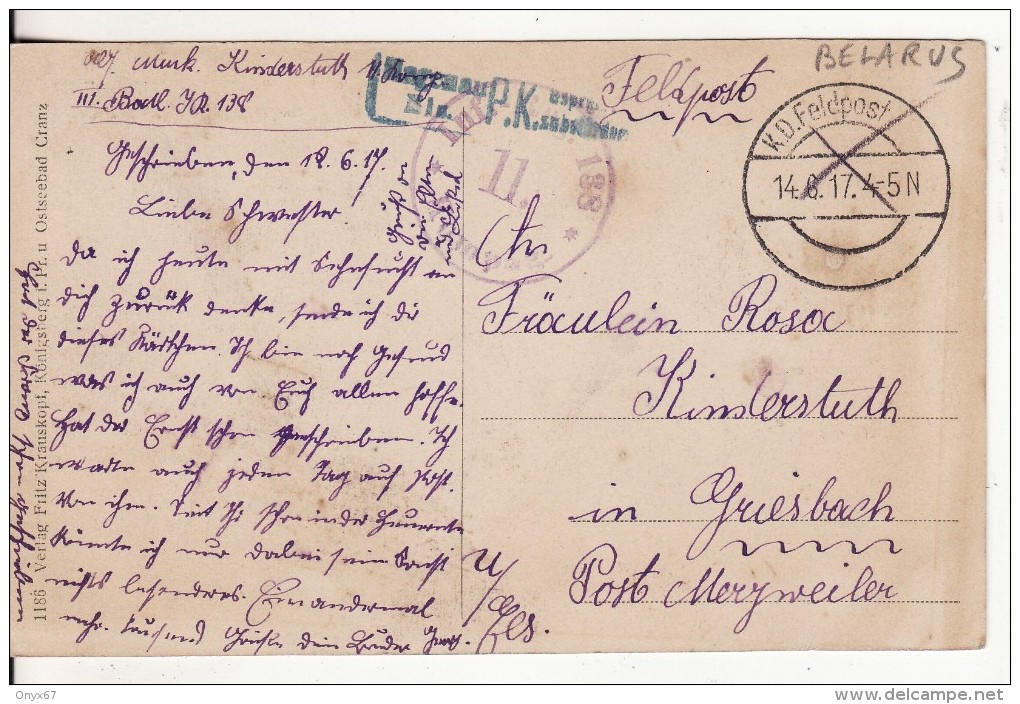 Musk. Kinderstuth 11. Komp
III. Batl. I.R. 138
Feldpost
BELARUS
P.K.
11.
138
K.D. Feldpost
14.6.17. 4-5N
Geschrieben, den 12.6.17.
Liebe Schwester.
Gruß an
die Eltern
und
Da ich heute mit Sehnsucht an
dich zurück denke, sende ich dir
dieses Kärtchen. Ich bin noch Gesund
was ich auch von Euch allen hoffe.
Hat der Ernst schon geschrieben. Ich
warte auch jeden Tag auf Post.
von ihm. Seit Ihr schon in der Heuernte
könnte ich nur dabei sein Sonst
nichts besonderes. Ein andermal
mehr. Tausend Grüße dein Bruder
Hat der schon geschrieben
An
Fräulein Rosa
Kinderstuth
in Griesbach
Post Merzweiler
U/Els.
1186 Verlag Fritz Krauskopf, Königsberg i. Pr. u Ostseebad Cranz
Onyx67
delcampe.net